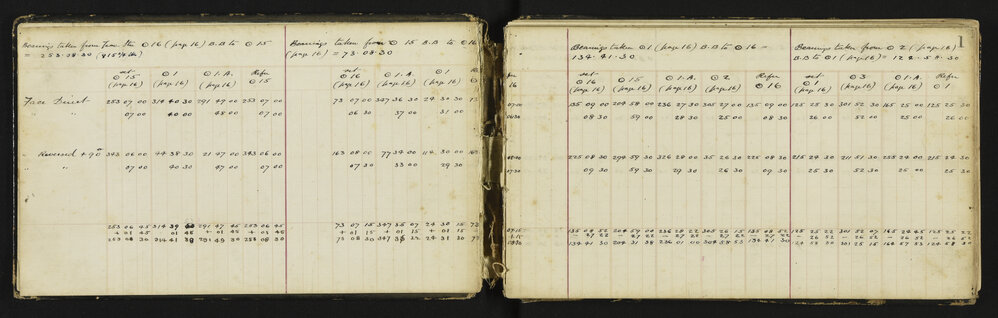 Bearings taken from ⊙ 16 (page 16) B.B to ⊙ 15
= 253.08.30
Bearings taken from ⊙ 15 B.B to ⊙ 16
(page 16) = 73.08.30
set ⊙ 15 (page 16) ⊙ 1 (page 16) ⊙ 1.A. (page 16) Refer ⊙ 15
set ⊙ 16 (page 16) ⊙ 1.A (page 16) ⊙ 1 (page 16)
Face Direct 253 07 00 314 40 30 291 49 00 253 07 00 73 07 00 347 36 30 24 30 30 73
" 07 00 40 00 48 00 07 00 06 30 37 00 31 00
" Reversed + 90° 343 06 00 44 38 30 21 47 00 343 06 00 163 08 00 77 34 00 114 30 00 163
" " 07 00 40 30 47 00 07 00 07 30 33 00 29 30
253 06 45 314 39 291 47 45 253 06 45 73 07 15 347 35 07 24 30 15 73
+ 01 45 01 45 + 01 45 + 01 45 + 01 15 + 01 15 + 01 15
253 08 30 314 41 291 49 30 253 08 30 73 08 30 347 36 22 24 31 30 73
1
Bearings taken ⊙ 1 (page 16) B.B to ⊙ 16 =
134.41.30
Bearings taken from ⊙ 2 (page 16)
B.B to ⊙ 1 (page 16) = 124.58.30
set ⊙ 16 (page 16) ⊙ 15 (page 16) ⊙ 1.A. (page 16) ⊙ 2 (page 16) Refer ⊙ 16
set ⊙ 1 (page 16) ⊙ 3 (page 16) ⊙ 1.A. (page 16) Refer ⊙ 1
07.00 135 09 00 204 58 00 236 27 30 305 27 00 135 09 00 125 25 30 301 52 30 165 25 00 125 25 30
06.30 08 30 59 00 28 30 25 00 08 30 26 00 52 00 25 00 26 00
225 08 30 294 59 30 326 28 00 35 26 30 225 08 30 215 24 30 211 51 30 255 24 00 215 24 30
07.30 09 30 59 30 29 30 26 30 09 30 25 30 52 30 25 00 25 30
07.15 135 08 52 204 59 00 236 28 22 305 26 15 135 08 52 125 25 22 301 52 07 165 24 45 125 25 22
- 27 22 - 27 22 - 27 22 - 27 22 - 27 22 - 26 52 - 26 52 - 26 52 - 26 52
134 41 30 204 31 38 236 01 00 304 58 53 134 41 30 124 58 30 301 25 15 164 57 53 124 58 30